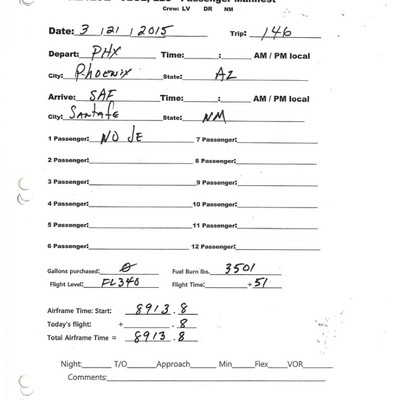 Passenger Manifest
Crew: LV DR NM
Date: 3 / 21 / 2015 Trip: 146
Depart: PHX Time: : AM / PM local
City: Phoenix State: AZ
Arrive: SAF Time: : AM / PM local
City: SantaFe State: NM
1 Passenger: NO JE 7 Passenger:
2 Passenger: 8 Passenger:
3 Passenger: 9 Passenger:
4 Passenger: 10 Passenger:
5 Passenger: 11 Passenger:
6 Passenger: 12 Passenger:
Gallons purchased: 0 Fuel Burn lbs. 3501
Flight Level: FL340 Flight Time: + 51
Airframe Time: Start: 8913.8
Today's flight: + .8
Total Airframe Time = 8913.8
Night: T/O Approach Min Flex VOR
Comments: